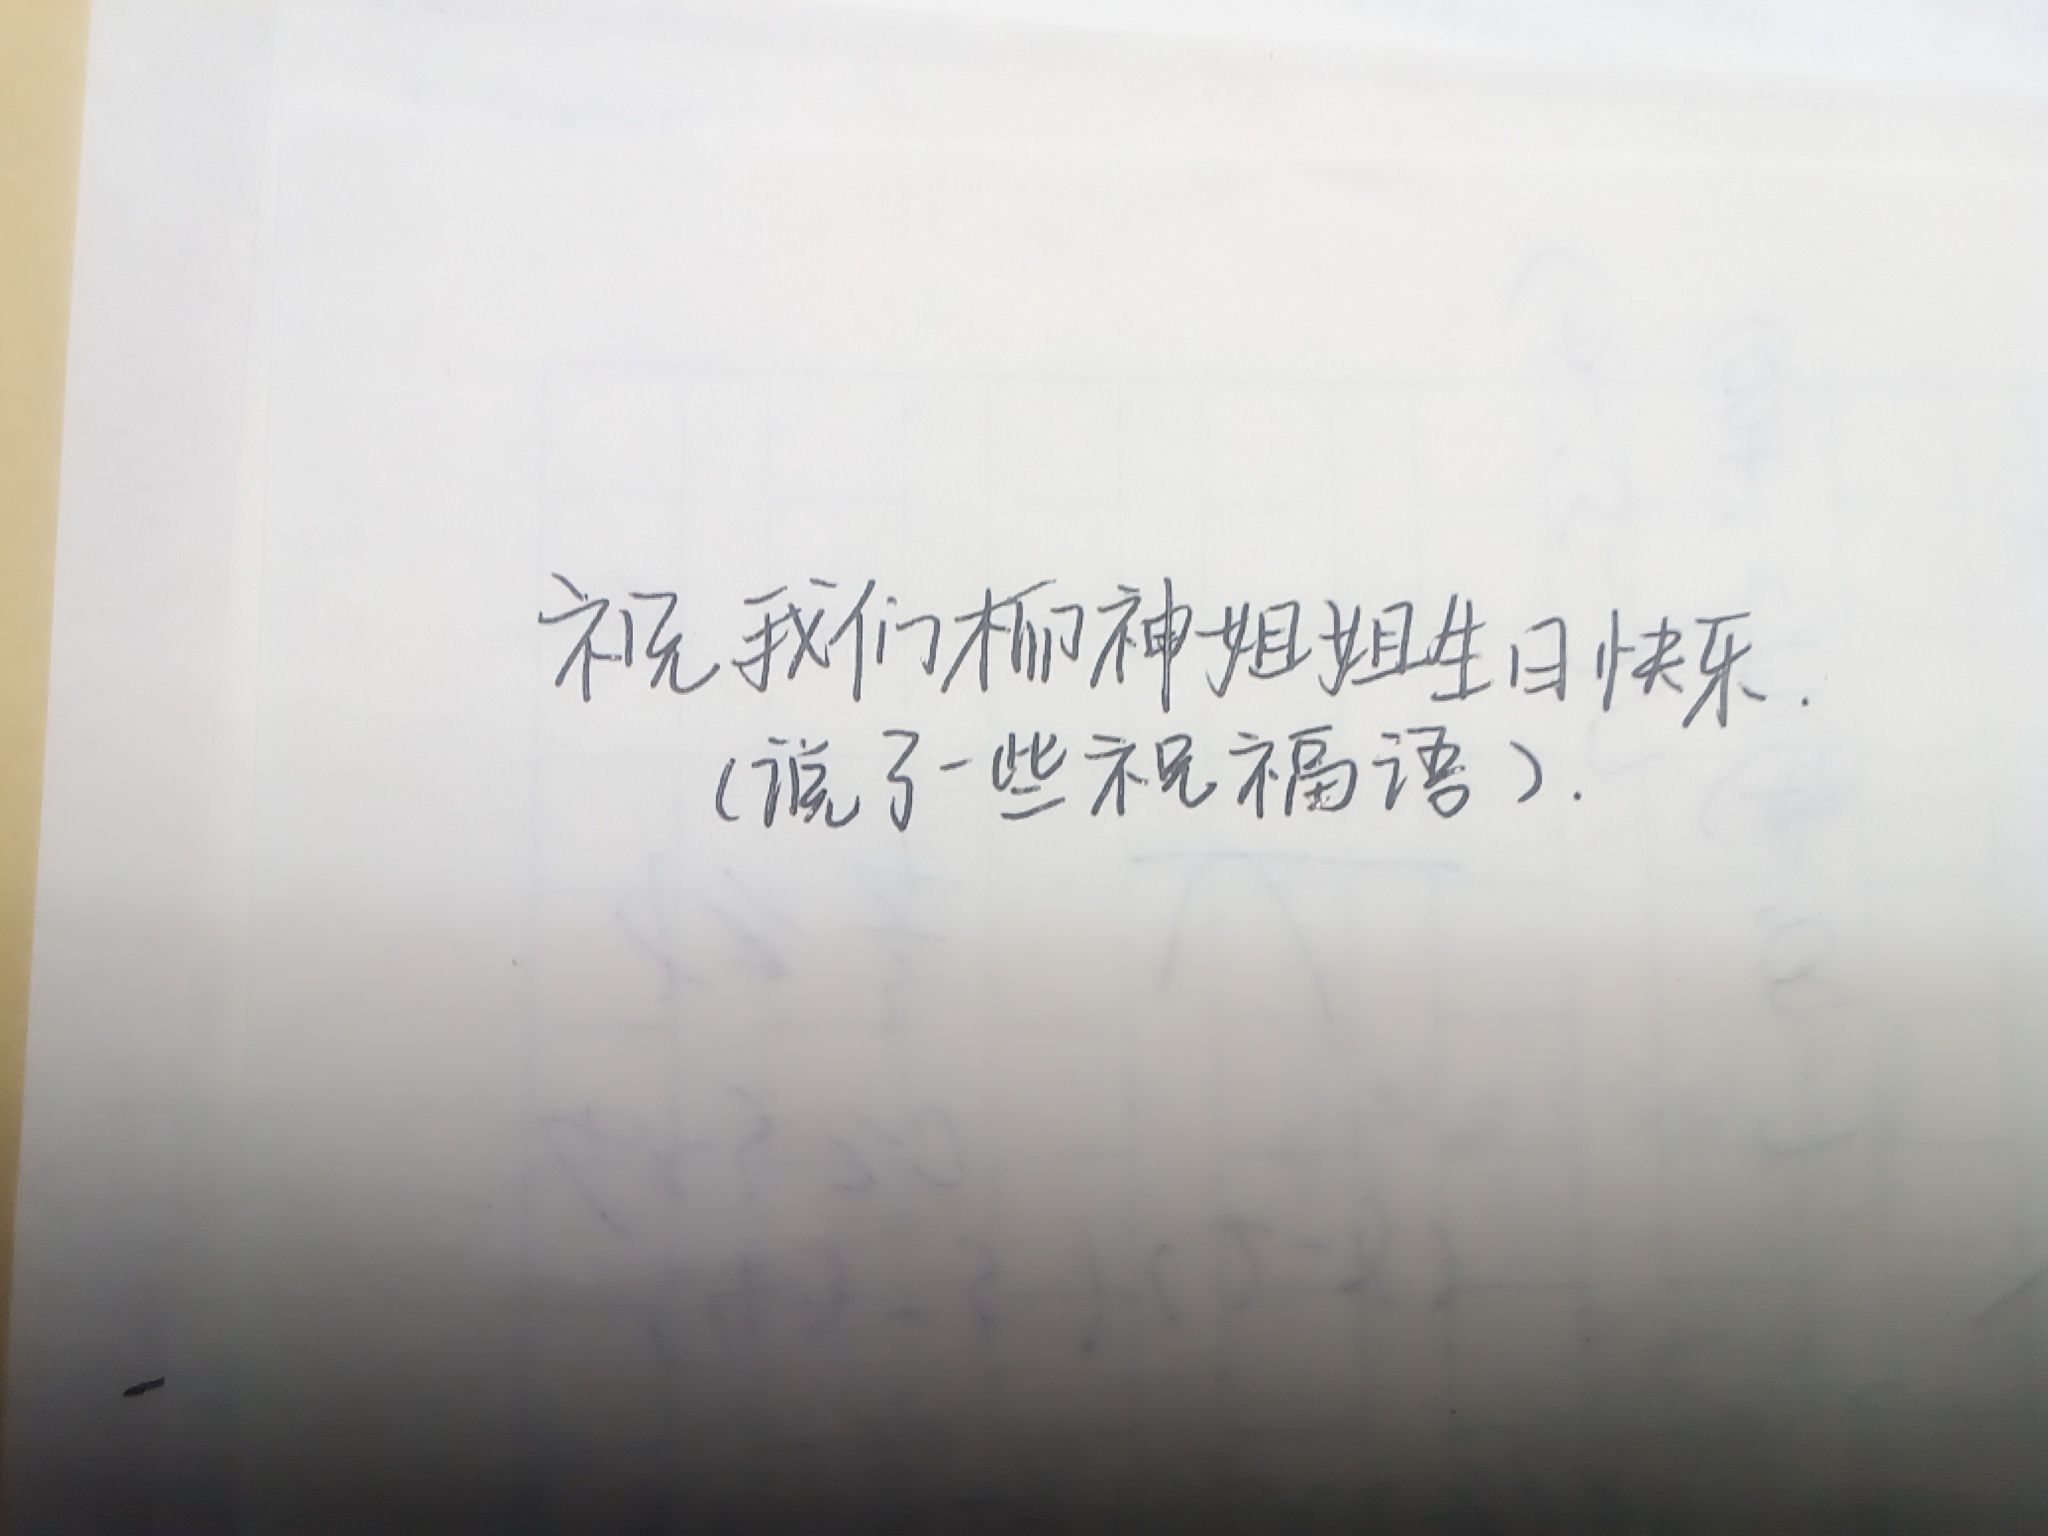 祝我们柳神姐姐生日快乐.
(说了一些祝福语).